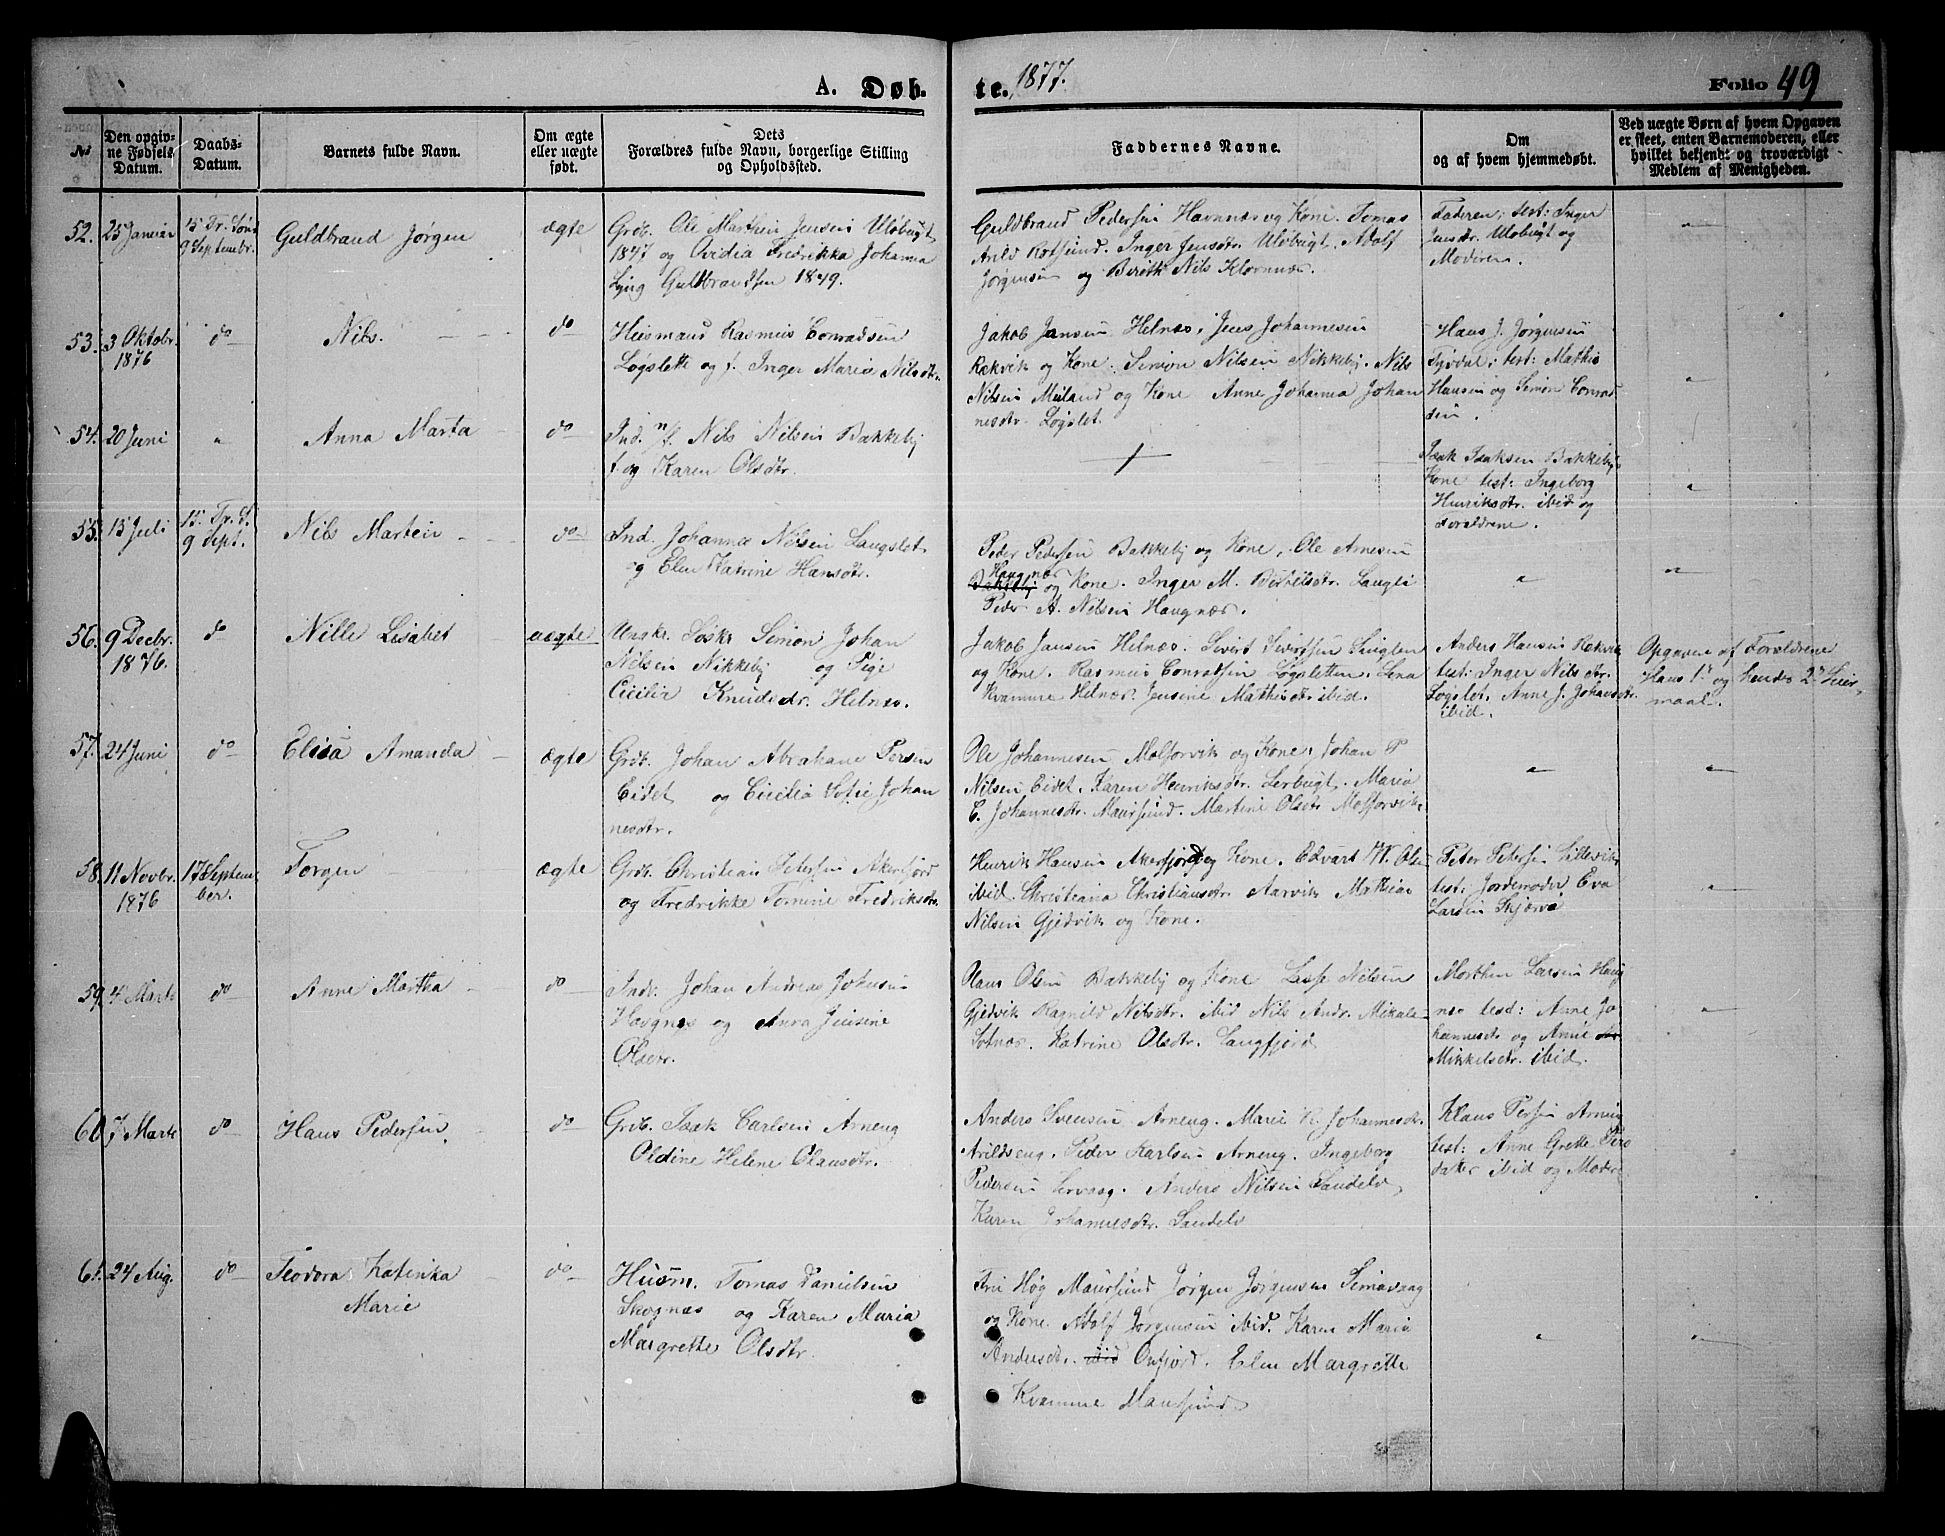 A. Døb.
te. 1877.
Folio 49
No
Den opgiv-
ne Fødsels
Datum.
Daabs-
Datum.
Barnets fulde Navn.
Om ægte
eller uægte
født.
Dets
Forældres fulde Navn, borgerlige Stilling
og Opholdssted.
Faddernes Navne.
Om
og af hvem hjemmedøbt.
Ved uægte Børn af hvem Opgaven
er skeet, enten Barnemoderen, eller
hvilket bekjendt og troværdigt
Medlem af Menigheden.
52.
25 Januar
15 Tr. Sønd
9 Septembr.
Guldbrand Jørgen
ægte
Grdb. Ole Marthin Jensen Uløbugt
1847 og Ovidia Fredrikka Johanna
Lyng Guldbrandsen 1849.
Guldbrand Pedersen Havnnæs og Kone. Tomas
Rotsund. Inger Jensdtr. Uløbugt. Adolf
Jørgensen og Nils
Faderen; test: Inger
Jensdtr. Uløbugt og
Moderen.
53.
3 Oktobr.
1876
do
Nils.
do
Huusmand Rasmus Conradsen
Løgslette og f. Inger Maria Nilsdtr.
Jakob Jansen Helnæs, Jens Johannesen
Rækvik og Kone. Simon Nilsen Nikkeby. Nils
Nilsen Meiland og Kone Anne Johanna Johan
nesdtr. Løgslet.
Hans J. Jørgensen
test: Mathis
Hansen og Simon Conrad
sen.
54.
20 Juni
"
Anna Marta
do
Ind. n/f. Nils Nilsen Bakkeby
f. og Karen Olsdtr.
+
Isak Isaksen Bakkeby
Kone test: Ingeborg
Henriksdtr. ibid og
Forældrene.
55.
15 Juli
15. Tr. S.
9 Sept.
Nils Martein
do
Ind. Johannes Nilsen Laugslet
og Elen Katrine Hansdtr.
Peder Pedersen Bakkeby og Kone, Ole Arnesen
Haugnæs
Bakkeby og Kone. Inger M. Bertelsdtr. Laugli
Peder A. Nilsen Haugnæs.
56.
9 Decbr.
1876.
do
Nille Lisabet
uægte
Ungk. Simon Johan
Nilsen Nikkeby og Pige
Cecilie Knudsdr. Helnæs.
Jakob Jansen Helnæs. Sivert Sivertsen
og Kone. Rasmus Conradsen Løgsletten. Lena
Kvamme Helnæs. Jensine Mathisdtr ibid.
Anders Hansen Rækvik
test: Inger Nilsdtr.
Løgslet. Anne J. Johansdtr.
ibid.
Opgaven af Forældrene
Hans 1ste og hendes 2det Leier-
maal.
57.
24 Juni
do
Elisa Amanda
ægte
Grdb. Johan Abraham Persen
Eidet og Cicilia Sofie Johan
nesdtr.
Ole Johannesen Molforvik og Kone, Johan P
Nilsen Eidet. Karen Henriksdtr. Lerbugt. Maria
E. Johannesdtr. Maursund. Martine Olsdtr Molforvik
58.
11 Novbr.
1876
17 Septem
ber.
Torgen
ægte
Grdb. Christian Petersen Akerfjord
og Fredrikke Tomine Fredriksdtr.
Henrik Hansen Akerfjord og Kone. Edvart W. Olsen
ibid Christiania Christiansdtr. Aarvik Mathias
Nilsen Gjedvik og Kone.
Peter Petersen Lillevik
test: Jordemoder Eva
Larsen Skjærvø
59.
4 Marts
do
Anne Martha
do
Indr. Johan Andreas Johnsen
Haugnæs og Anna Jensine
Olsdtr.
Klaus Olsen Bakkeby og Kone Lasse Nilsen
Gjedvik Ragnild Nilsdtr. ibid Nils Andr. Mikalsen
Sotnæs. Katrine Olsdtr. Langfjord
Morthen Larsen Haug
næs test: Anne Jo
hannesdtr og Anne
Mikkelsdtr. ibid.
60.
7 Marts
do
Hans Pedersen
do
Grdb. Isak Carlsen Arneng
Oldine Helene Olausdtr.
Anders Svensen Arneng. Marie K. Johannesdtr.
Arildseng. Peder Karlsen Arneng. Ingeborg
Pedersen Lervaag. Anders Nilsen Sandelv
Karen Johannesdtr. Sandelv
Klaus Persen Arneng
test: Anne Grette Pers
datter ibid og Moder
61.
24 Aug.
do
Teodora Katinka
Marie
do
Husm. Tomas Danielsen
Skognæs og Karen Maria
Margrette Olsdtr.
Fru Høg Maursund Jørgen Jørgensen
og Kone. Adolf Jørgensen ibid. Karen Maria
Andersdtr. ibid Oxfjord. Elen Margrette
Kvamme Maursund